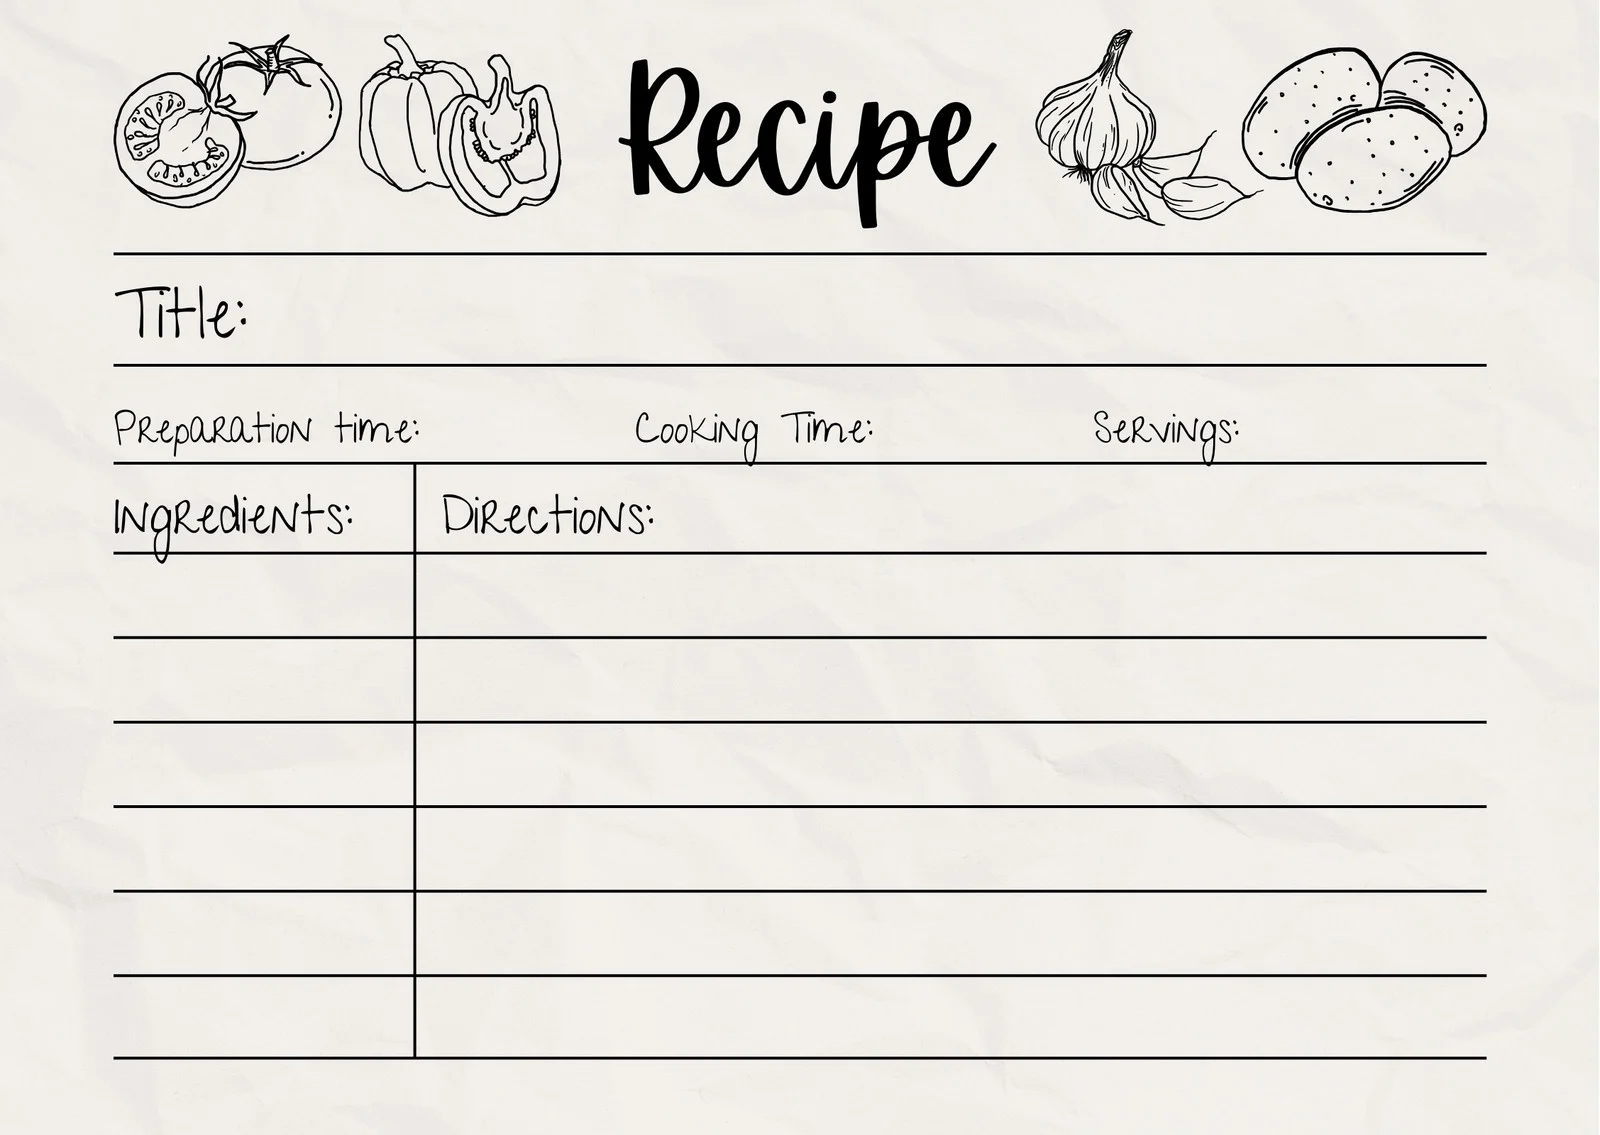 Recipe
Title:
Preparation time: Cooking Time: Servings:
Ingredients: Directions: